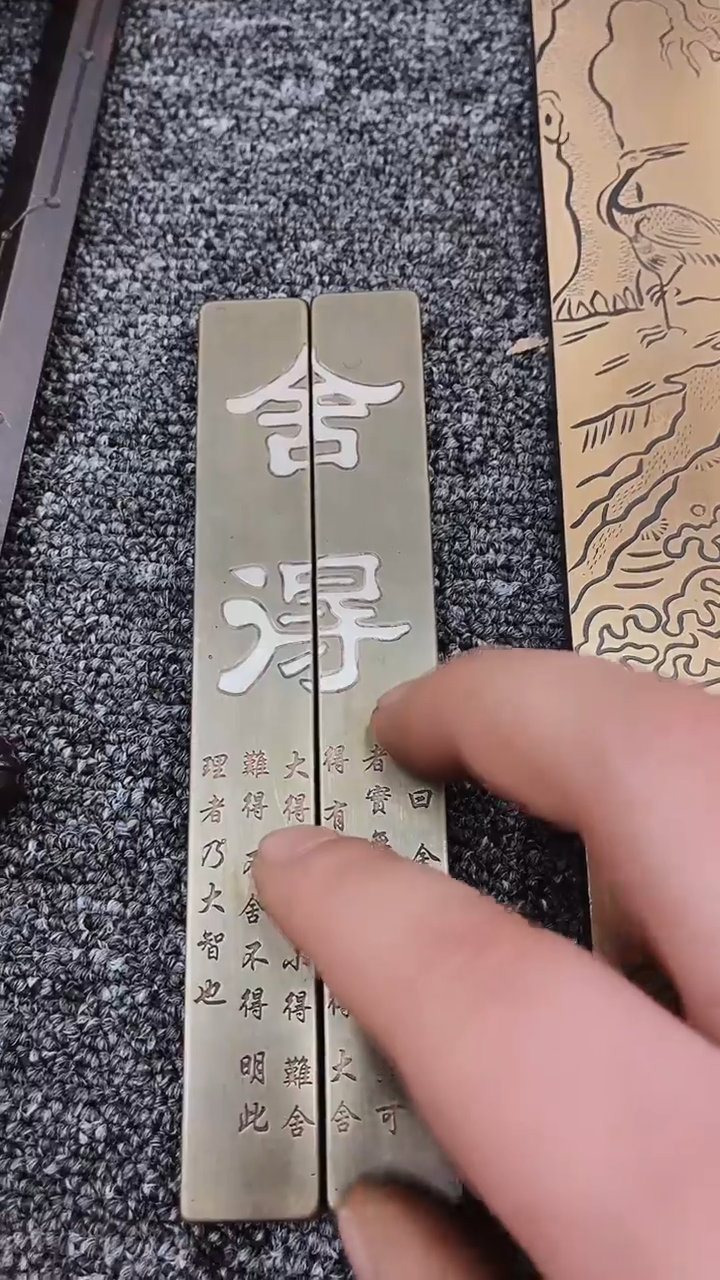 舍得
曰舍
者實無可
得有得大舍
大得小得難舍
難得不舍不得明此
理者乃大智也